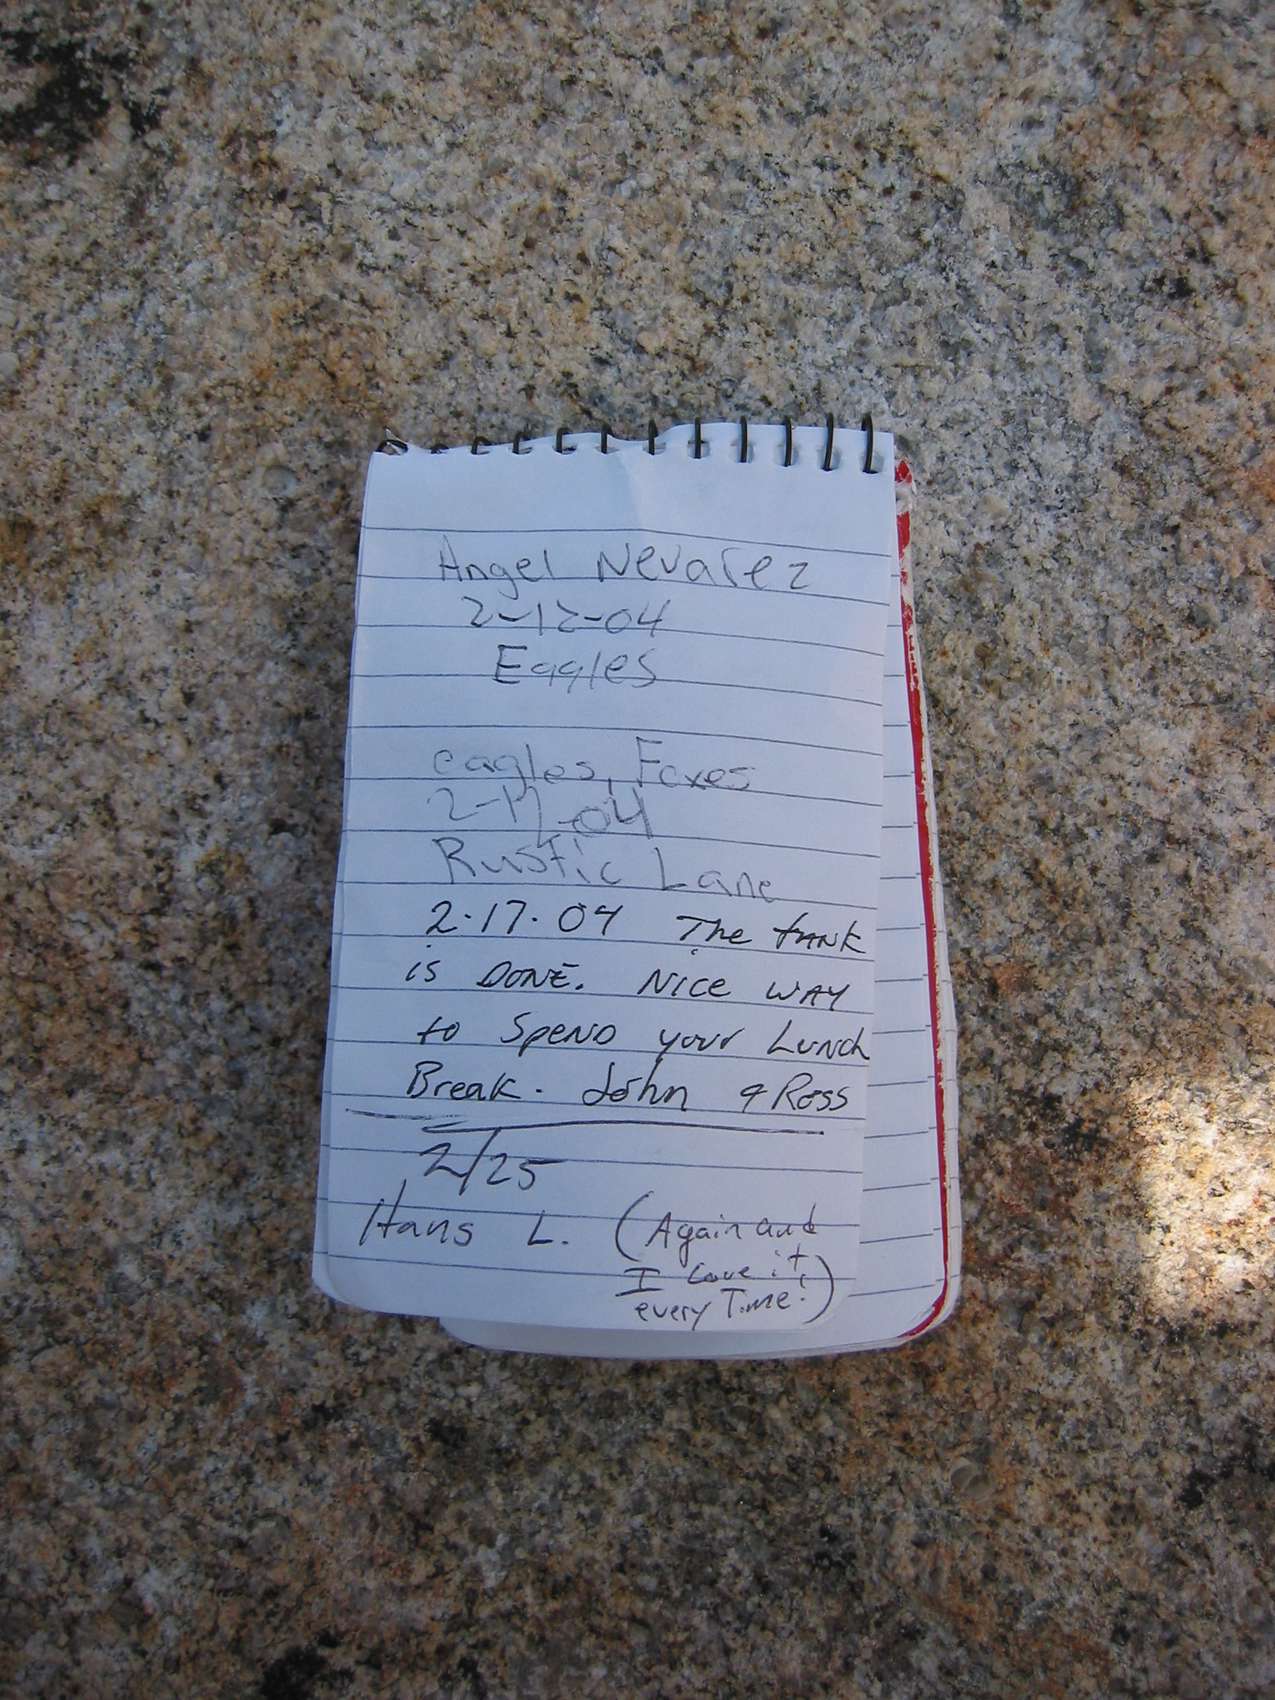 Angel Nevarez
2-12-04
Eagles
eagles, Foxes
2-12-04
Rustic Lane
2.17.04 The tank
is DONE. Nice way
to Spend your Lunch
Break. John & Ross
2/25
Hans L. (Again and
I Love it
every Time!)